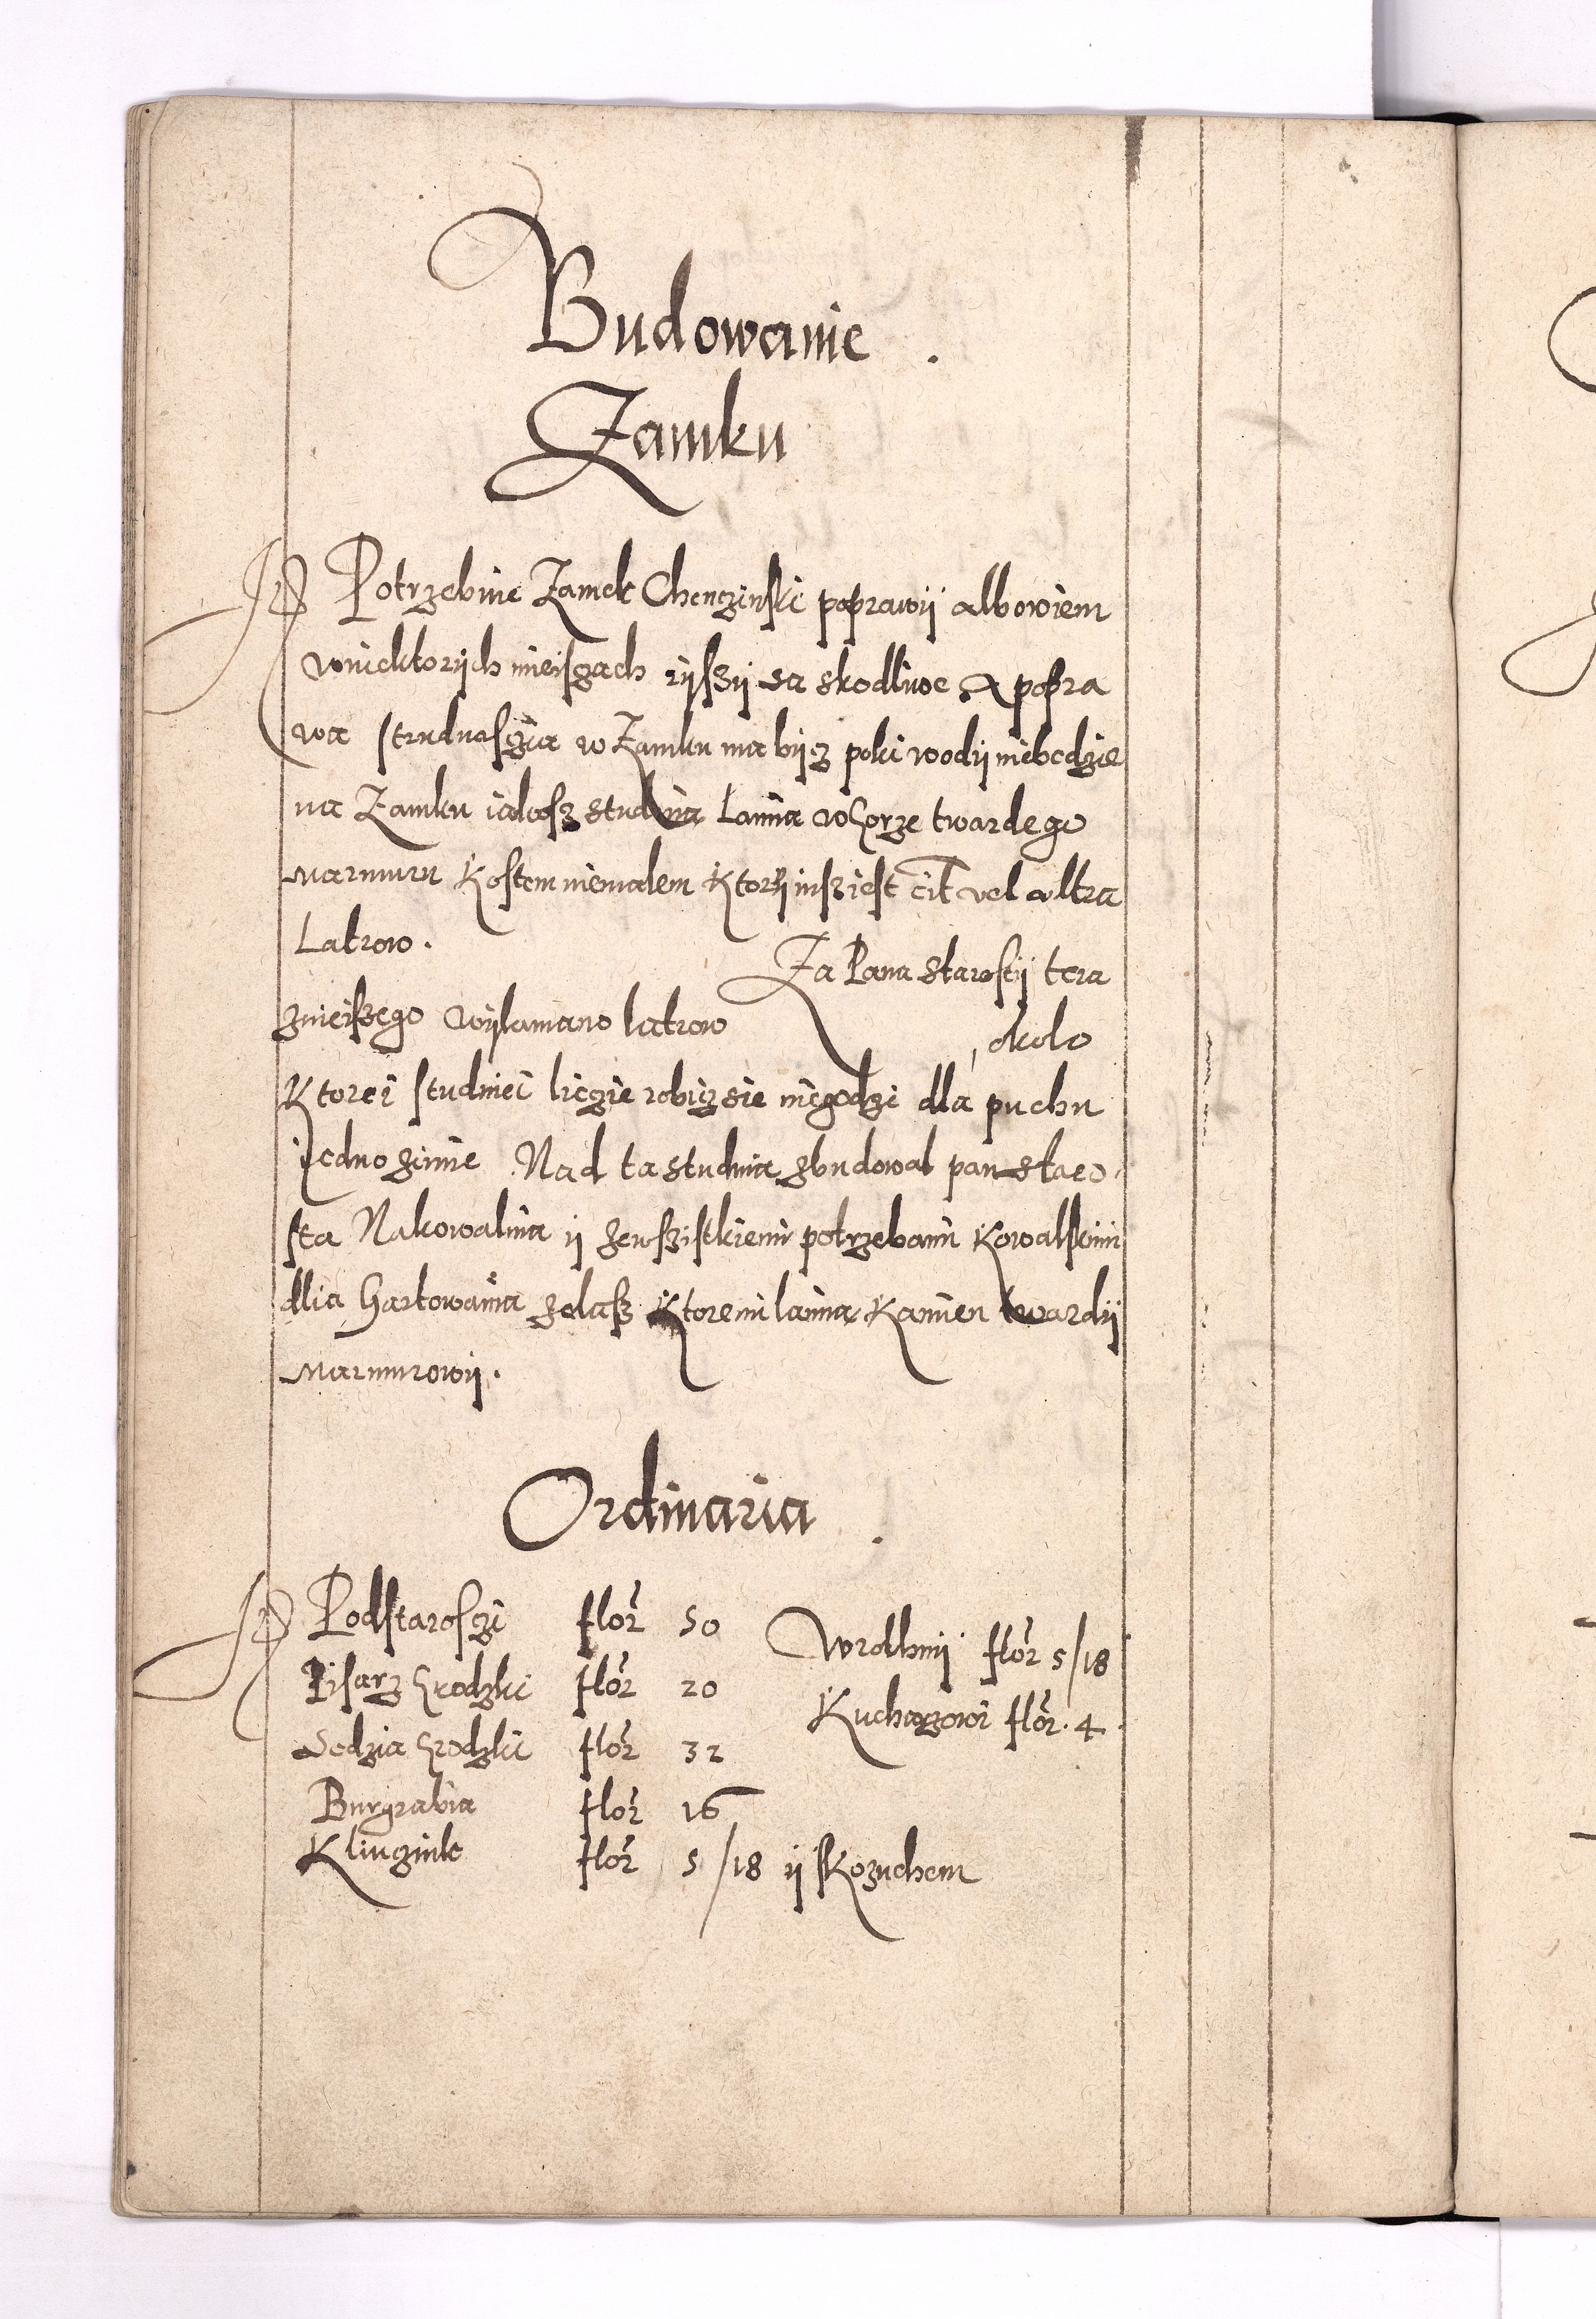 Budowanie .
Zamku
Potrzebuie Zamek Chenczinski poprawÿ albowiem
wniektorÿch mieiszach rÿssÿ sa skodliwe A popra
wa strudnoscia w Zamku ma bÿcz poki wodÿ niebedzie
na Zamku iakosz studnia Lamia wHorze twardego
marmuru Kostem niemalem Ktorÿ iusz iest cit vel altra
Latrow .
Za Pana Starostÿ tera
znieiszego wÿlamano latrow
okolo
Ktorei studniei liczie robicz sie niegodzi dla puchu
iedno zimie Nad ta studnia zbudowal pan staro
sta Nakowalnia ÿ zewszistkiemi potrzebami Kowalskimi
dlia Hartowania zelasz Ktoremi lamia Kamien twardÿ
marmurowÿ .
Ordinaria .
Podstarosczi flor 50 Wrothnÿ flor 5/18
Pisarz Grodzki flor 20 Kucharzowi flor . 4 .
Sedzia Grodzki flor 32
Burgrabia flor 16
Kliucznik flor 5/18 ÿ sKozuchem